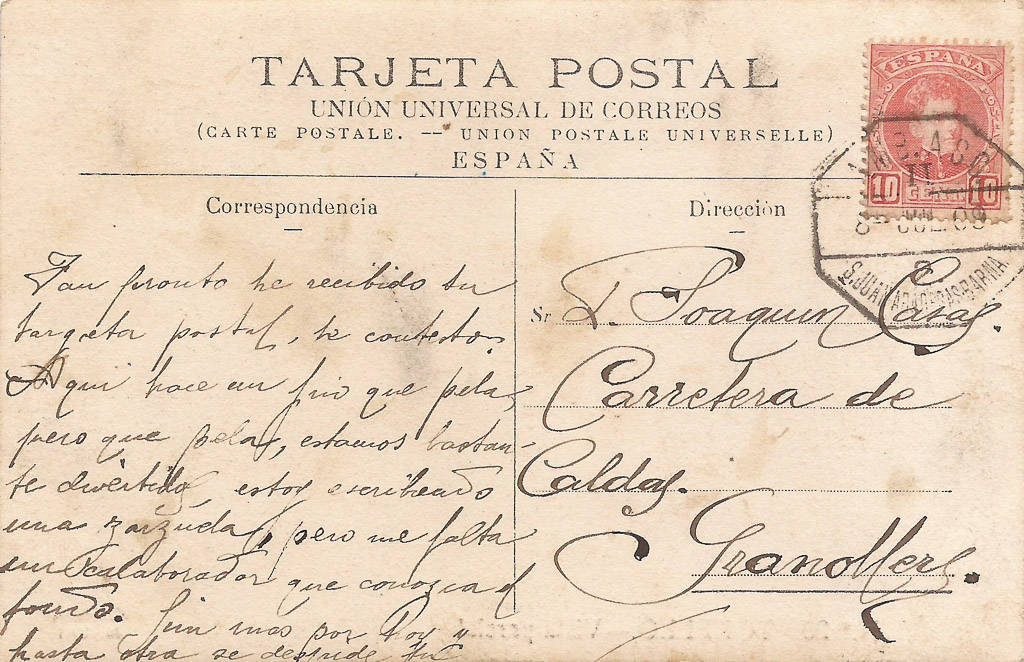 TARJETA POSTAL
UNIÓN UNIVERSAL DE CORREOS
(CARTE POSTALE. — UNION POSTALE UNIVERSELLE)
ESPAÑA
ESPAÑA
10 10
8 JUL. 09
Correspondencia
Tan pronto he recibido tu
targeta postal, te contesto.
Aqui hace un frio que pela,
pero que pela, estamos bastan-
te divertidos, estoy escribiendo
una zarzuela, pero me falta
un colaborador que conozca el
fondo. Sin mas por hoy y
hasta otra se despide tu
Dirección
Sr D. Joaquin Casas.
Carretera de
Caldas.
Granollers.